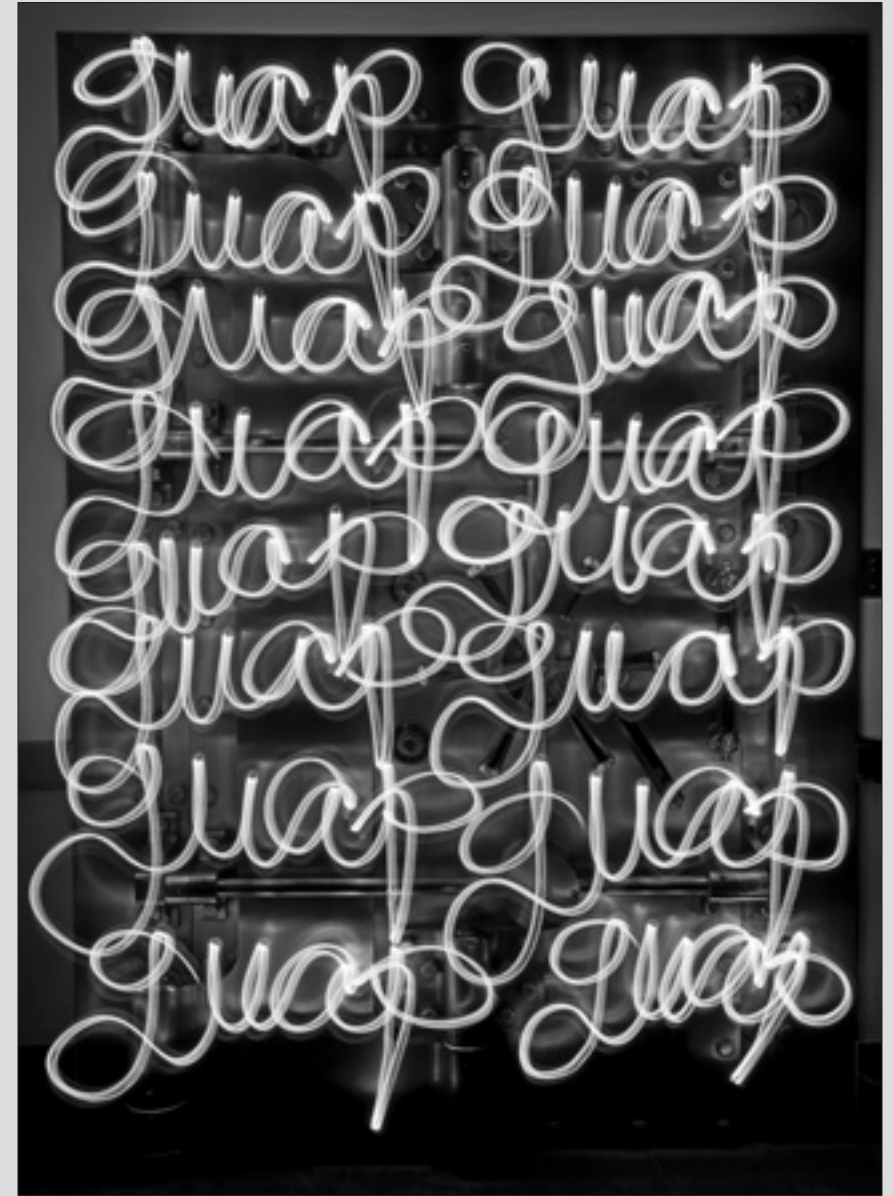 guap guap
guap guap
guap guap
guap guap
guap guap
guap guap
guap guap
guap guap